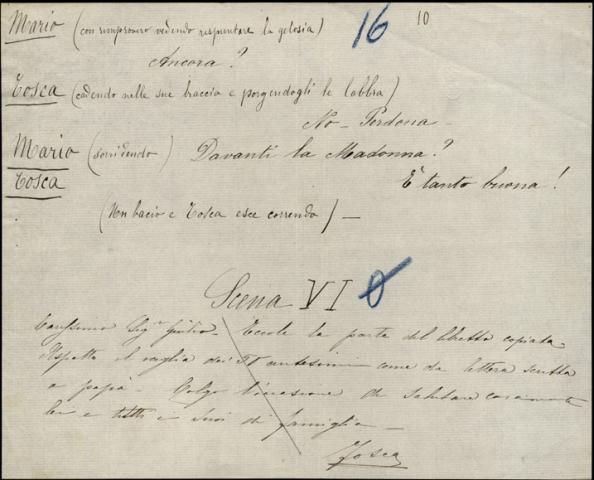 16 10
Mario (con rimprovero vedendo rispuntare la gelosia)
Ancora?
Tosca (cadendo nelle sue braccia e porgendogli le labbra)
No - Perdona -
Mario (sorridendo) Davanti la Madonna?
Tosca
È tanto buona!
(Un bacio e Tosca esce correndo) —
Scena VI
Carissimo Sigr Giulio - Eccole la parte del libretto copiata.
Aspetto il vaglia dei centesimi come da lettera scritta
a papà - Colgo l'occasione di salutare
lei e tutti i suoi di famiglia —
Tosca